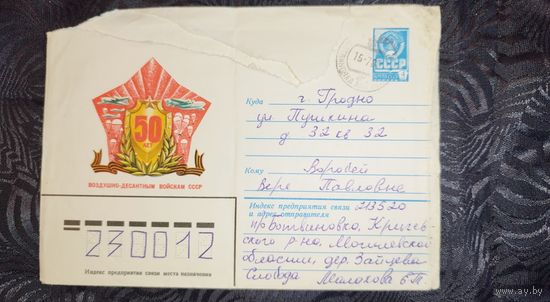 СССР
Куда г. Гродно
ул Пушкина
д 32 кв 32
50
ЛЕТ
ВОЗДУШНО-ДЕСАНТНЫМ ВОЙСКАМ СССР
Кому Воробей
Вере Павловне
Индекс предприятия связи 213520
и адрес отправителя
п/о Ботвиновка, Кричев-
ского р-на, Могилевской
области, дер. Зайцева
Слобода
230012
Индекс предприятия связи места назначения
www.ay.by